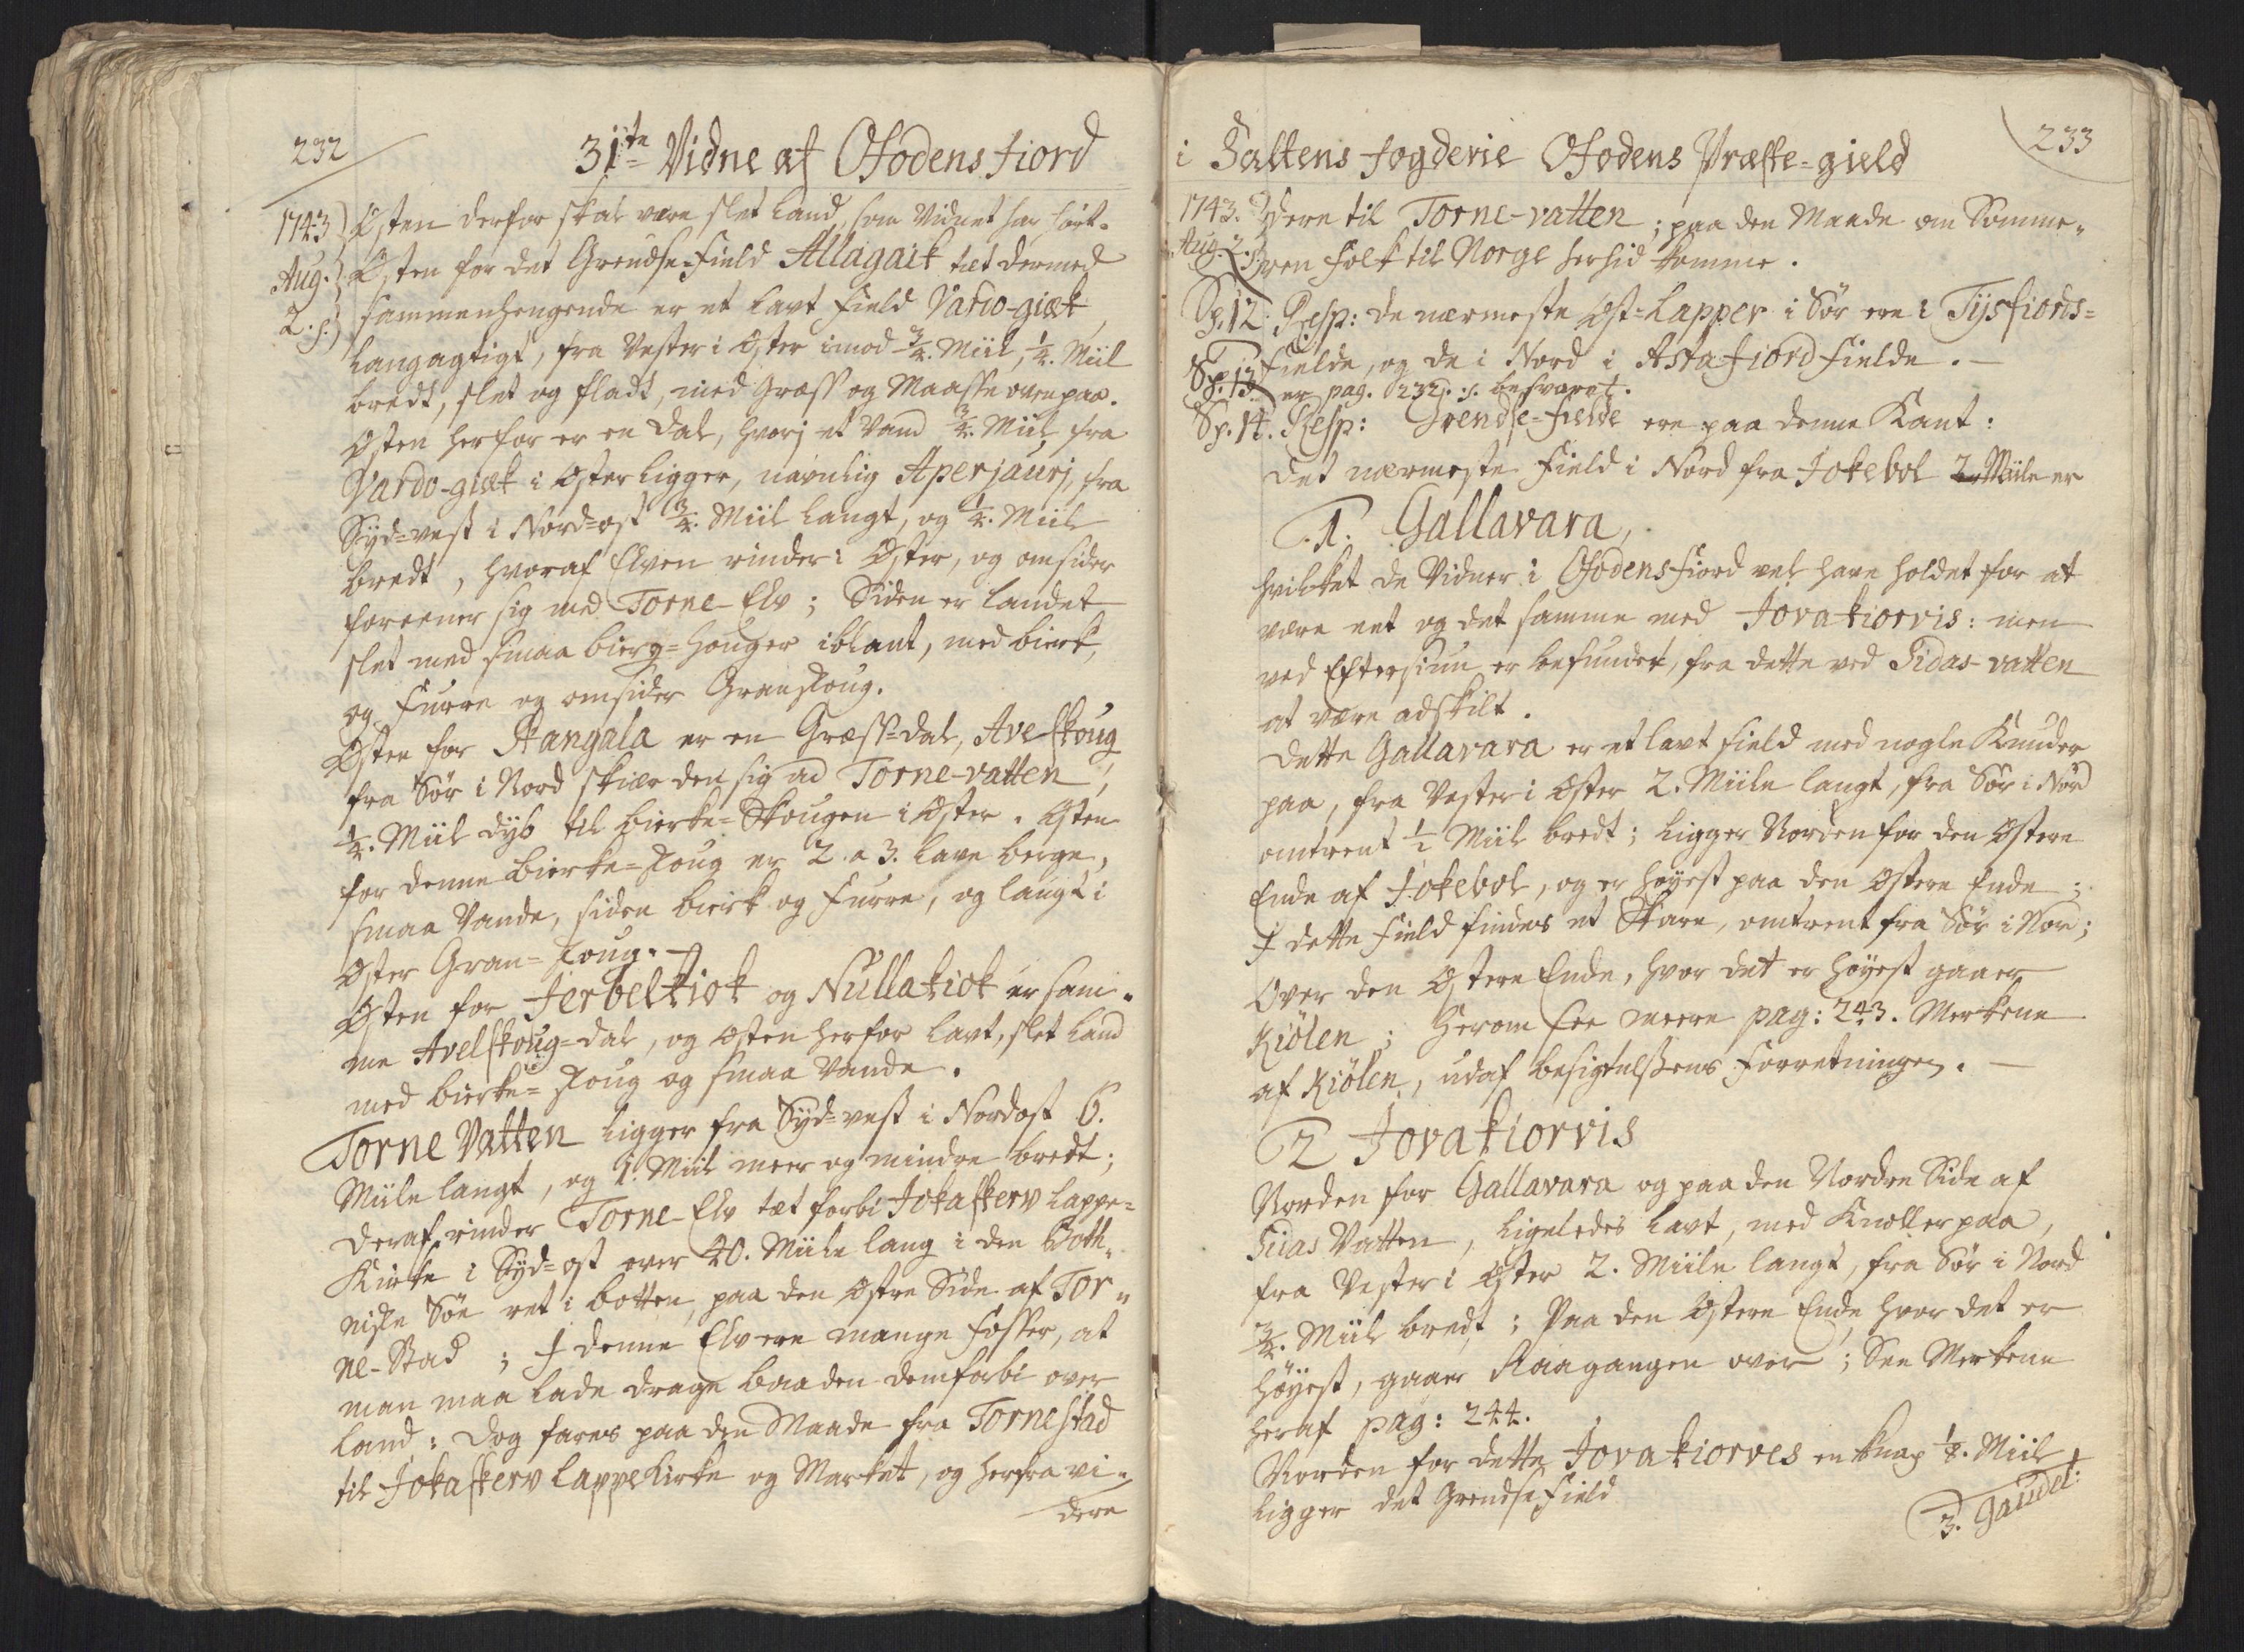 232
31te Vidne af Ofodens fiord
1743 Østen derfor skal være slet Land, som Vidnet har hørt.
Aug. Østen for det Grendse-Field Allagaik tæt dermed
2. s. sammenhengende er et lavt Field Vardo-giæk,
langagtigt, fra Vester i Øster imod 3/4. Miil, 1/4. Miil
bredt, slet og fladt, med Græss og Maasse ovenpaa.
Østen herfor er en Dal, hvorj et Vand 3/4. Miil fra
Vardo-giæk i Øster ligger, navnlig Aperjaurj, fra
Syd-vest i Nord-ost 3/4. Miil langt, og 1/4. Miil
bredt, hvoraf Elven rinder i Øster, og omsider
foreener sig med Torne-Elv; Siden er Landet
slet med smaa bierg-houger iblant, med birk,
og Furre og omsider Granskoug.
Østen for Stangala er en Græss-dal, Avelskoug
fra Sør i Nord skiær den sig ad Torne-vatten,
1/4. Miil dyb til bierke-Skougen i Øster. Østen
for denne bierke-skoug er 2. a 3. lave berge,
smaa Vande, siden bierk og Furre, og langt i
Øster Gran-skoug.
Østen for Jerbeltiok og Nullatiok er sam-
me Avelskoug-dal, og Østen herfor lavt, slet Land
med bierke-skoug og smaa Vande.
Torne Vatten ligger fra Syd-vest i Nordost 6.
Miile langt, og 1. Miil meer og mindre bredt;
deraf rinder Torne-Elv tæt forbi Jokaskerv Lappe-
Kirke i Syd-ost over 40. Miile lang i den Both-
niske Søe ret i botten, paa den Østre Side af Tor-
ne-Stad; I denne Elv ere mange Fosser, at
man maa lade drage baaden dem forbi over
Land: Dog fares paa den Maade fra Tornestad
til Jokaskerv Lappe Kirke og Market, og herfra vi-
dere
i Saltens fogderie Ofodens Præste-gield
233
1743. dere til Torne-vatten; paa den Maade om Somme-
Aug. 2. s. ren Folk til Norge herhid komme.
Sp. 12. Resp: de nærmeste Øst-Lapper i Sør ere i Tysfiords-
Fielde, og de i Nord i Astafiord Fielde.
Sp. 13. er pag. 232. s. besvaret.
Sp. 14. Resp: Grendse-Fielde ere paa denne Kant:
Det nærmeste Field i Nord fra Jokebol 2 Miile er
1. Gallavara,
hvilket de Vidner i Ofodens fiord vel have holdet for at
være eet og det samme med Jovakiorvis: men
ved Eftersiun er befundet, fra dette ved Sidas-vatten
at være adskilt.
Dette Gallavara er et lavt Field med nogle Knuder
paa, fra Vester i Øster 2. Miile langt, fra Sør i Nord
omtrent 1/2 Miil bredt; ligger Norden for den Østere
Ende af Jokebol, og er høyest paa den Østere Ende;
I dette Field findes et Skare, omtrent fra Sør i Nor;
Over den Østere Ende, hvor det er høyest gaaer
Kiølen; Herom see meere pag: 243. Merkene
af Kiølen, udaf besigtelsens Forretningen.
2 Jovakiorvis
Norden for Gallavara og paa den Nordre Side af
Sidas Vatten, ligeledes lavt, med Knoller paa,
fra Vester i Øster 2. Miile langt, fra Sør i Nord
3/4. Miil bredt; Paa den Østere Ende, hvor det er
høyest, gaaer Raagangen over; See Merkene
heraf pag: 244.
Norden for dette Jovakiorves en knap 1/8. Miil
ligger det Grendse Field
3. Gaudet: